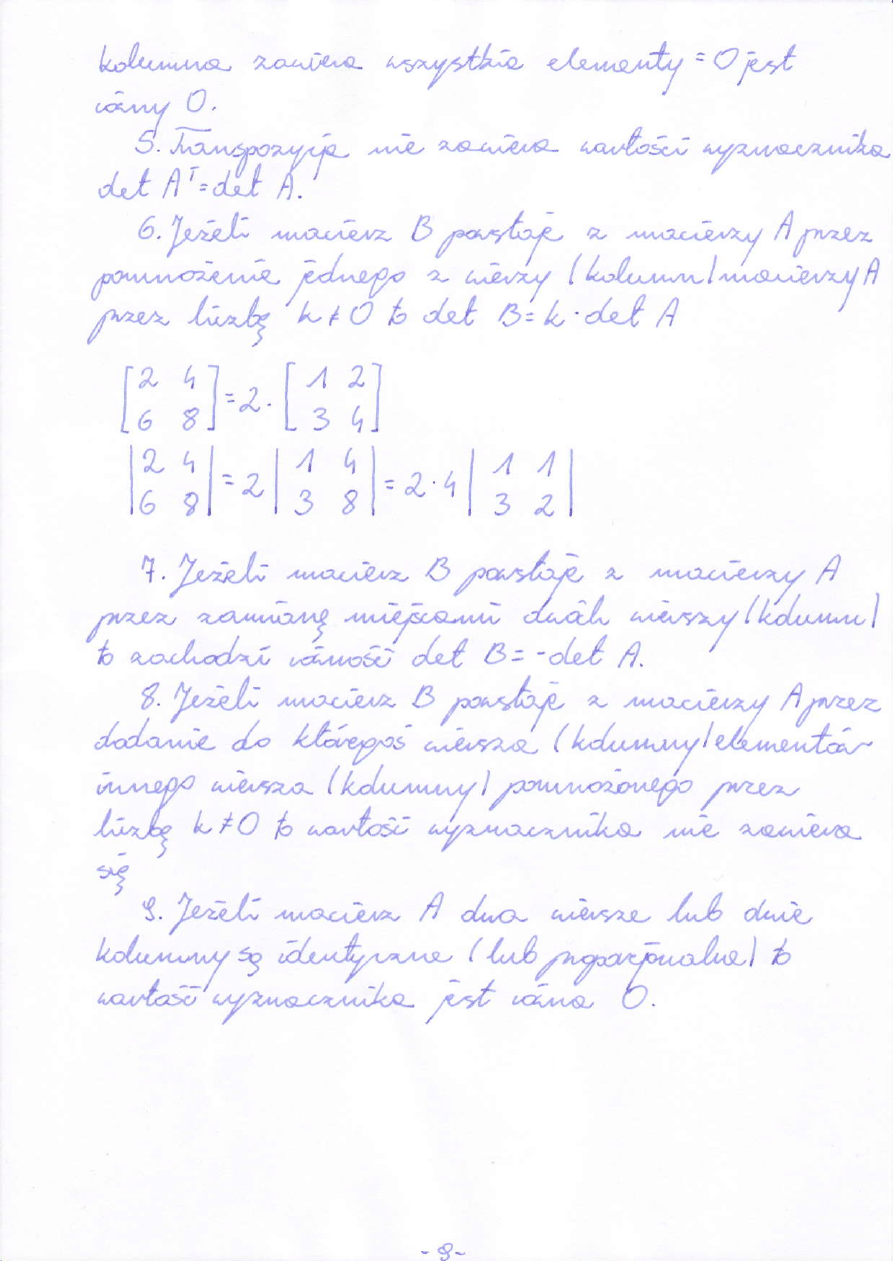 kolumna zawiera wszystkie elementy = 0 jest
równy 0.
5. Transpozycja nie zawiera wartości wyznacznika
det Aᵀ = det A.
6. Jeżeli macierz B powstaje z macierzy A przez
pomnożenie jednego z wierzy (kolumn) macierzy A
przez liczbę k ≠ 0 to det B = k · det A
[2 4; 6 8] = 2 · [1 2; 3 4]
|2 4; 6 8| = 2 |1 4; 3 8| = 2 · 4 |1 1; 3 2|
7. Jeżeli macierz B powstaje z macierzy A
przez zamianę miejscami dwóch wierszy (kolumn)
to zachodzi równość det B = - det A.
8. Jeżeli macierz B powstaje z macierzy A przez
dodanie do któregoś wiersza (kolumny) elementów
innego wiersza (kolumny) pomnożonego przez
liczbę k ≠ 0 to wartość wyznacznika nie zawiera
się
9. Jeżeli macierz A dwa wiersze lub dwie
kolumny są identyczne (lub proporcjonalne) to
wartość wyznacznika jest równa 0.
- 9 -